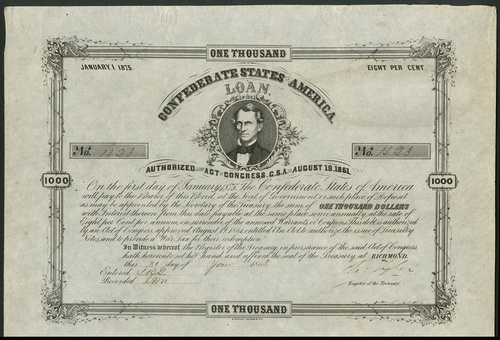 ONE THOUSAND
JANUARY, 1, 1875.
EIGHT PER CENT.
CONFEDERATE STATES AMERICA.
LOAN.
No. 1323
No. 1323
AUTHORIZED BY ACT OF CONGRESS, C.S.A. OF AUGUST 19. 1861.
1000
1000
On the first day of January 1875 The Confederate States of America
will pay to the Bearer of this Bond, at the seat of Government, or such place of Deposit
as may be appointed by the Secretary of the Treasury, the sum of ONE THOUSAND DOLLARS
with Interest thereon from this date payable at the same place semi annually, at the rate of
Eight per Cent per annum, on surrender of the annexed Warrants or Coupons. This debt is authorized
by an Act of Congress, approved August 19, 1861, entitled An Act to authorize the issue of Treasury
Notes, and to provide a War Tax for their redemption.
In Witness whereof the Register of the Treasury, in pursuance of the said Act of Congress
hath hereunto set his hand and affixed the seal of the Treasury at RICHMOND.
this day of 186
Entered
Recorded
Register of the Treasury.
ONE THOUSAND